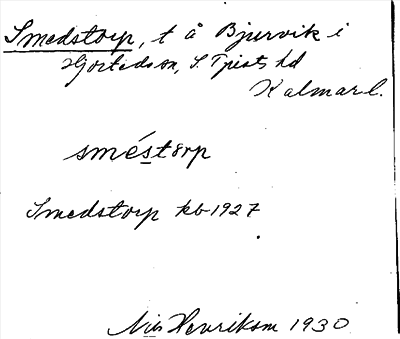 Smedstorp, t å Bjurvik i
Hjorteds sn, S. Tjusts hd
Kalmar l.
sméstorp
Smedstorp kb 1927
Nils Henrikson 1930